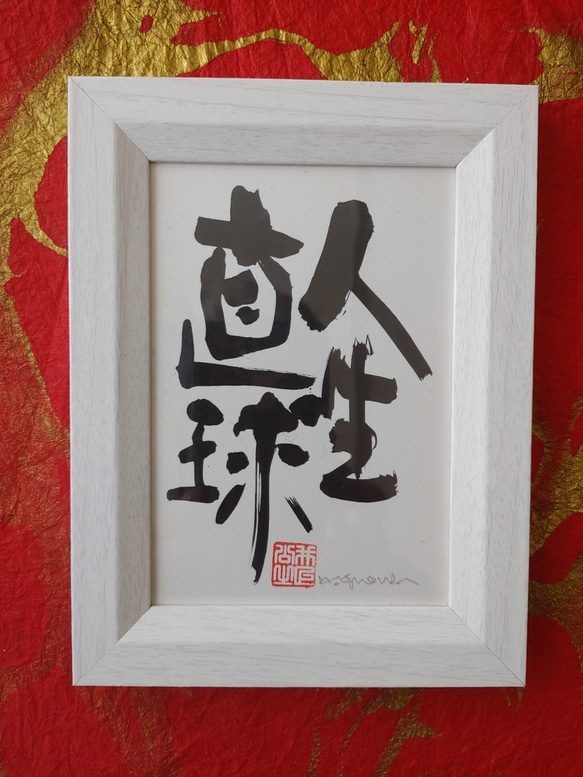 人生
直球